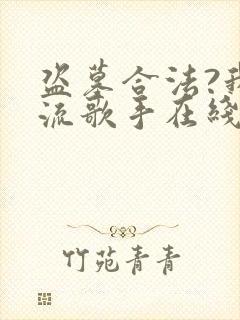 盗墓合法?我
流歌手在綫
竹苑青青